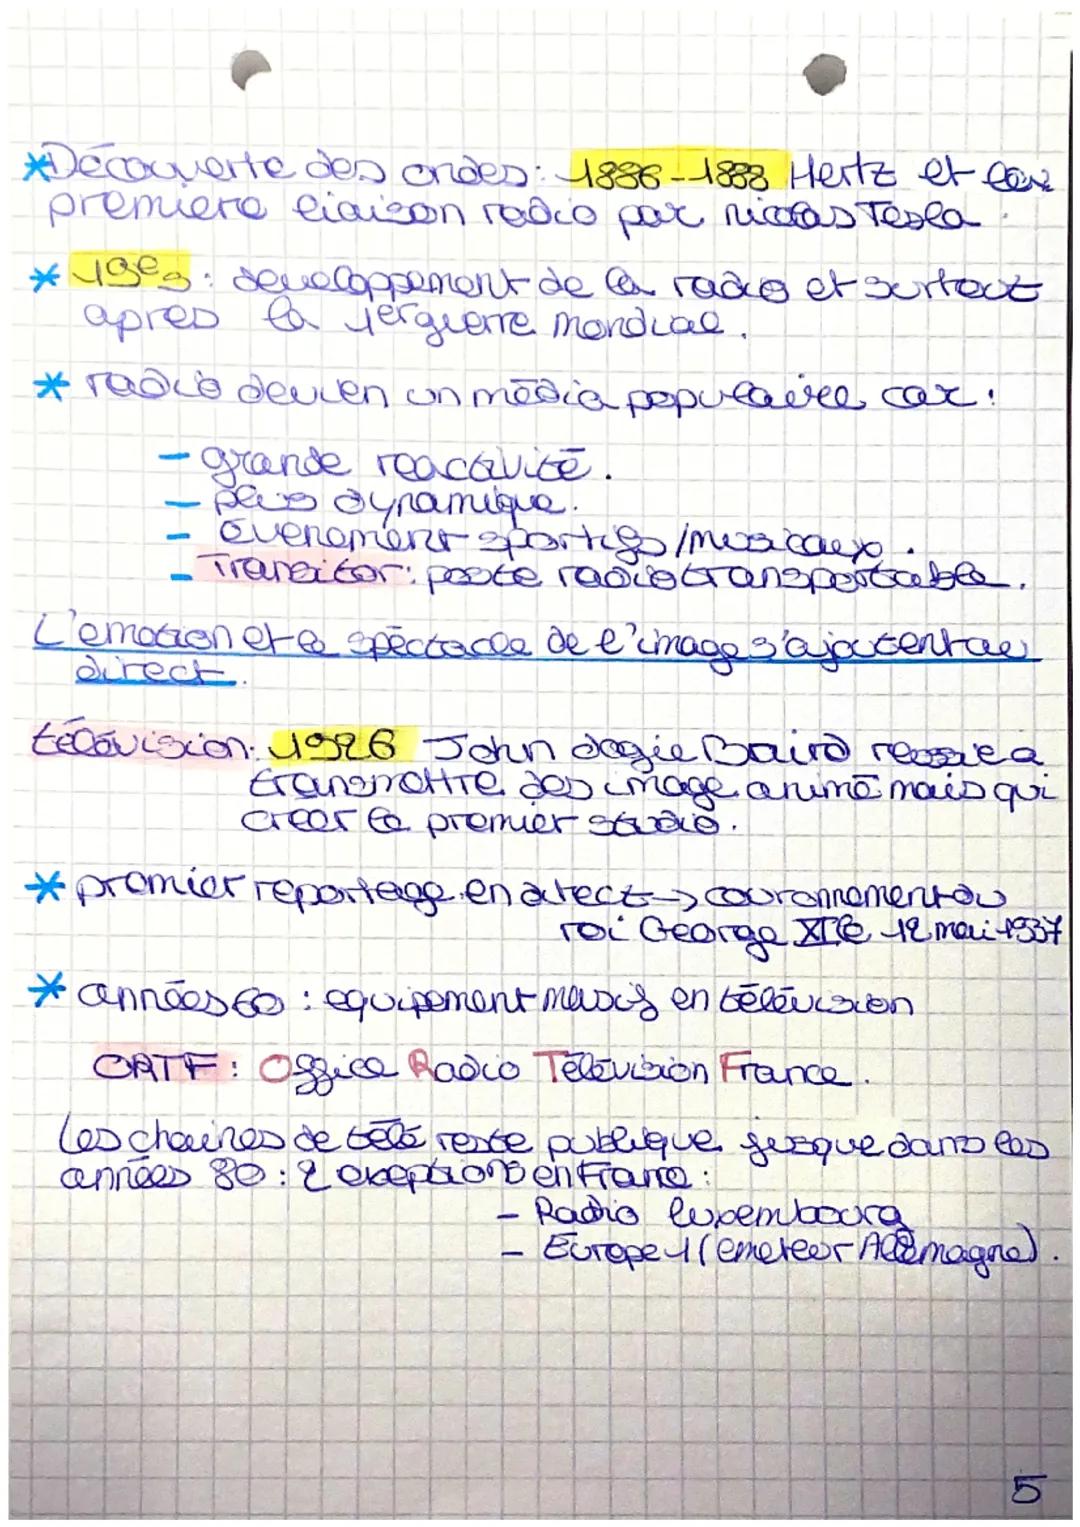 *Découverte des ondes: 1886-1888 Hertz et la
premiere liaison radio par nicolas Tesla.
* 19es: developpement de la radio et surtout
apres la 1erguerre mondial.
* radio devien un média populaire car:
- grande reactivité.
- plus dynamique.
- évenement sportifs/musicaux.
- Transitor: poste radio transportable.
L'emotion et le spéctacle de l'image s'ajoutent au
direct.
télévision: 1926 John logie Baird reussie a
transmettre des image animé mais qui
creer le premier studio.
* premier reportage en direct → couronnement du
roi George 12 mai 1937
* années 60: equipement massif en télévision
ORTF: Office Radio Télévision France.
Les chaines de télé reste publique jusque dans les
années 80: 2 exeptions en France:
- Radio luxembourg
- Europe 1 (emeteur Allemagne).
5